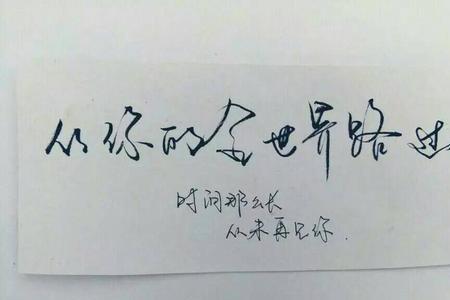 从你的全世界路过
时间那么长
从未再见你.